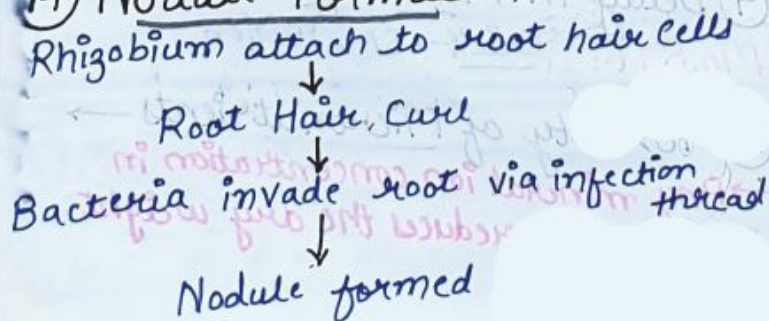 Rhizobium attach to root hair cells
↓
Root Hair Curl
↓
Bacteria invade root via infection
thread
↓
Nodule formed